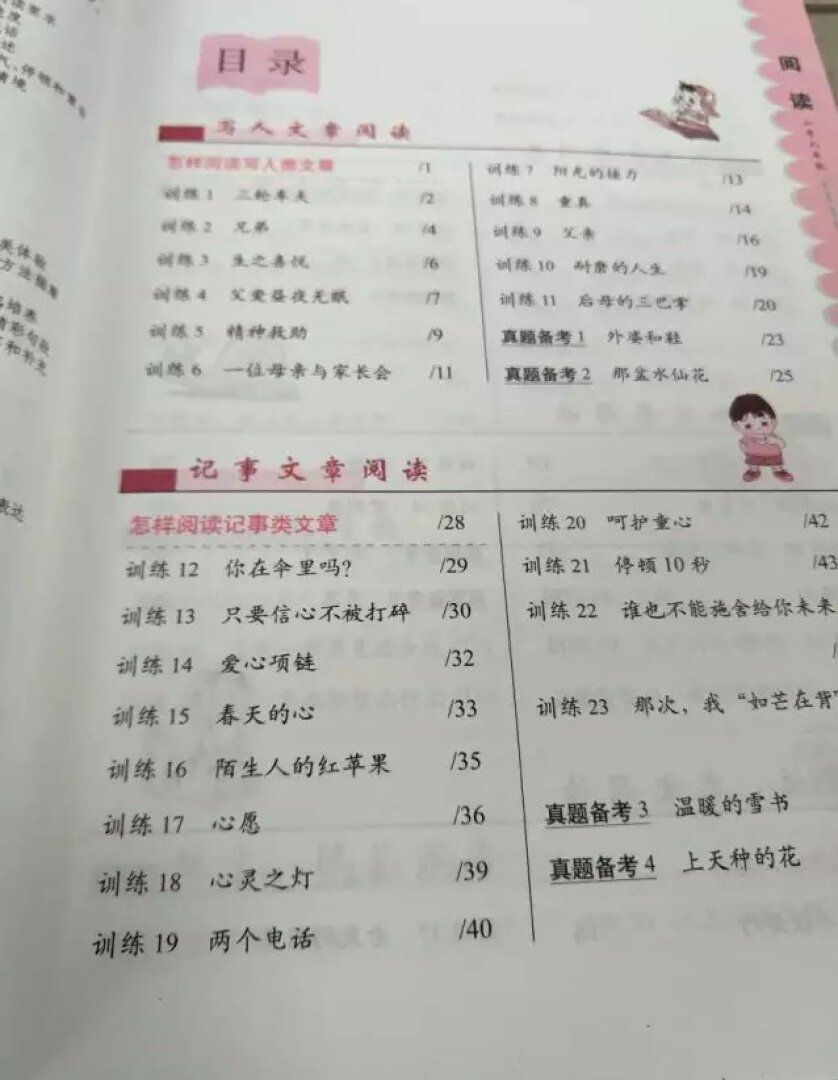 目录
写人文章阅读
怎样阅读写人类文章 /1
训练1 三轮车夫 /2
训练2 兄弟 /4
训练3 生之喜悦 /6
训练4 父爱昼夜无眠 /7
训练5 精神救助 /9
训练6 一位母亲与家长会 /11
训练7 阳光的接力 /13
训练8 童真 /14
训练9 父亲 /16
训练10 耐磨的人生 /19
训练11 后母的三巴掌 /20
真题备考1 外婆和鞋 /23
真题备考2 那盆水仙花 /25
记事文章阅读
怎样阅读记事类文章 /28
训练12 你在伞里吗? /29
训练13 只要信心不被打碎 /30
训练14 爱心项链 /32
训练15 春天的心 /33
训练16 陌生人的红苹果 /35
训练17 心愿 /36
训练18 心灵之灯 /39
训练19 两个电话 /40
训练20 呵护童心 /42
训练21 停顿10秒 /43
训练22 谁也不能施舍给你未来
/
训练23 那次，我“如芒在背”
真题备考3 温暖的雪书
真题备考4 上天种的花
阅读